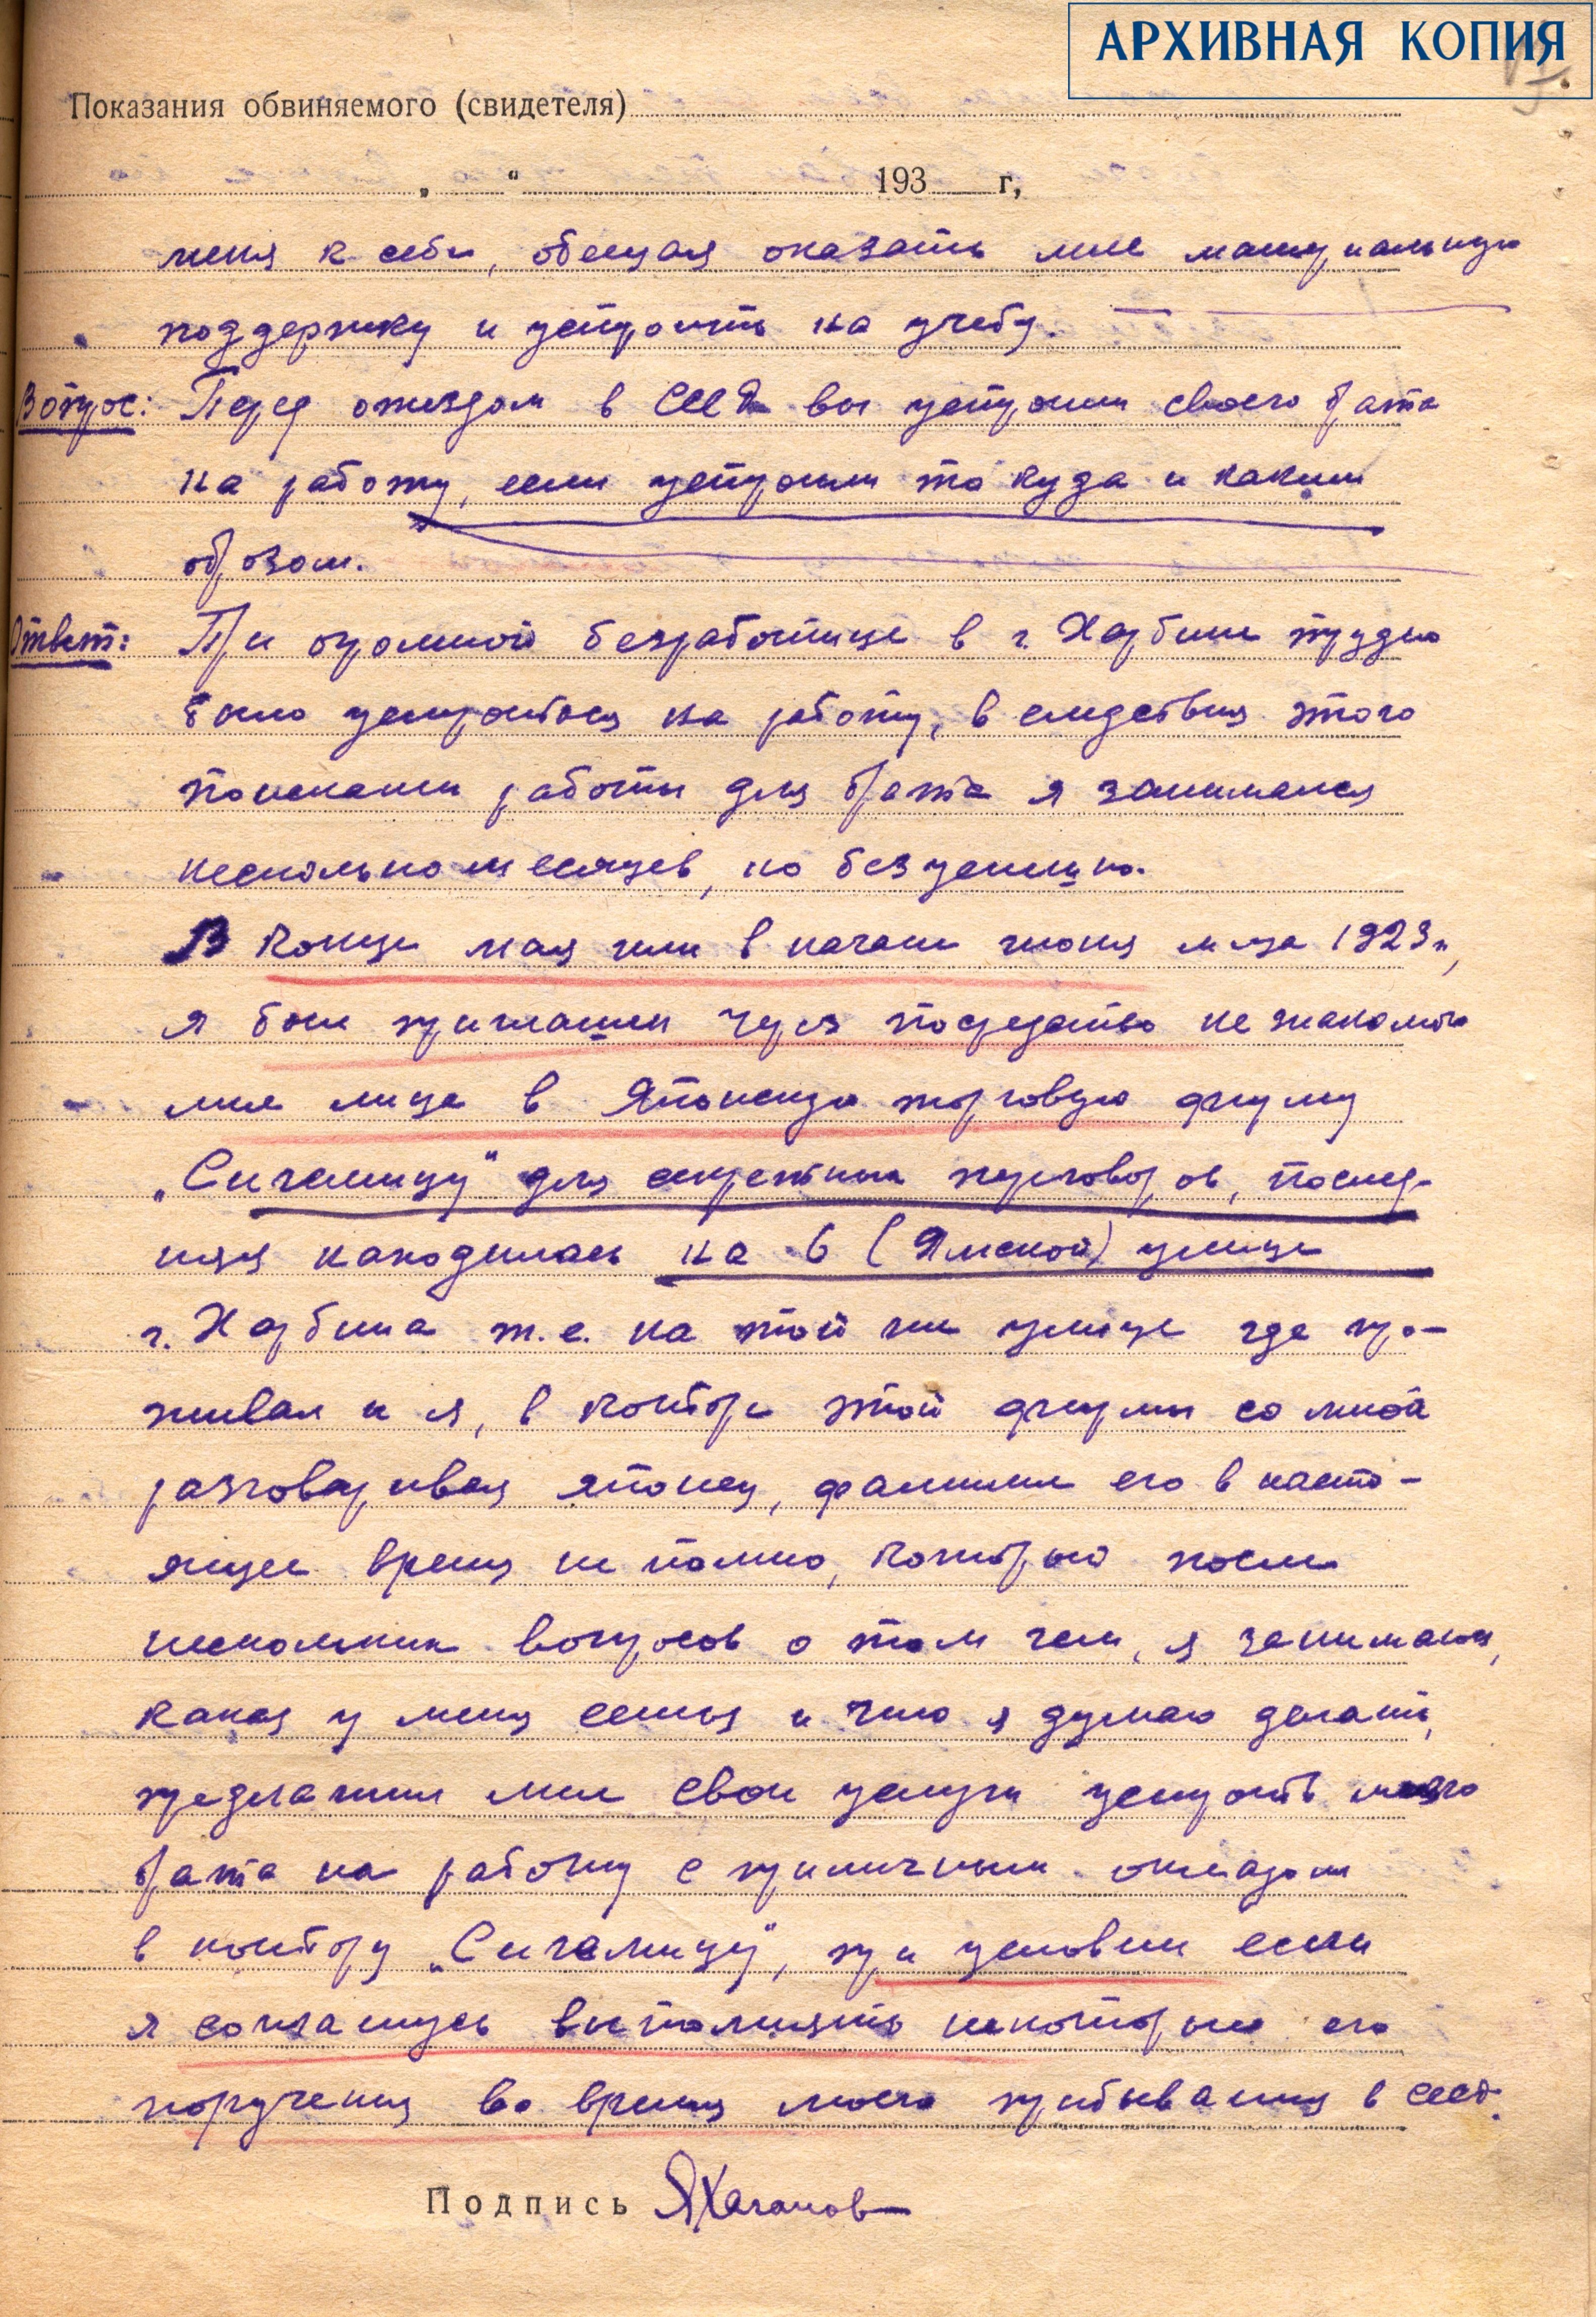 АРХИВНАЯ КОПИЯ
Показания обвиняемого (свидетеля)
„ “ 193 г,
меня к себе, обещая оказать мне материальную
поддержку и устроить на учебу. —
Вопрос: Перед отъездом в СССР вы устроили своего брата
на работу, если устроили то куда и каким
образом.
Ответ: При огромной безработице в г. Харбине трудно
было устроиться на работу, в следствия этого
поисками работы для брата я занимался
несколько месяцев, но безуспешно.
В конце мая или в начале июня м-ца 1923 г,
я был приглашен через посредство не знакомого
мне лица в Японскую торговую фирму
„Сигемицу“ для секретных переговоров, послед-
няя находилась на 6 (Ямской) улице
г. Харбина т.е. на той же улице где про-
живал и я, в конторе этой фирмы со мной
разговаривал японец, фамилии его в насто-
ящее время не помню, который после
нескольких вопросов о том чем, я занимаюсь,
какая у меня семья и что я думаю делать,
предложил мне свои услуги устроить моего
брата на работу с приличным окладом
в контору „Сигемицу“, при условии если
я соглашусь выполнять некоторые его
поручения во время моего прибывания в СССР.
Подпись ЯХаганов